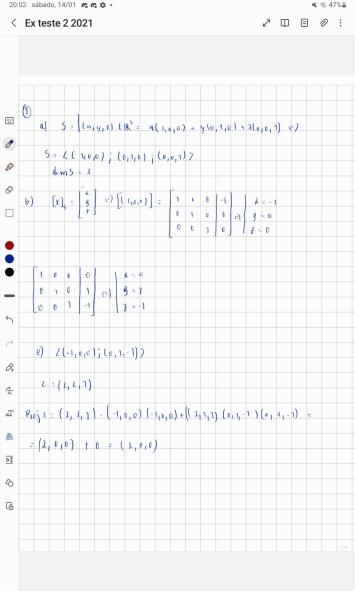 20:02 sábado, 14/01
47%
Ex teste 2 2021
①
a) S = {(x,y,z) ∈ ℝ³ = x(1,0,0) + y(0,1,0) + z(0,0,1)
S = <(1,0,0); (0,1,0); (0,0,1)>
dim S = 3
b) [x] = [x y z] (=) [(-1,0,0)] = [1 0 0 | -1
0 1 0 | 0
0 0 1 | 0] (=) x = -1
y = 0
z = 0
[1 0 0 | 0
0 1 0 | 1
0 0 1 | -1] (=) x = 0
y = 1
z = -1
c) <(-1,0,0); (0,1,-1)>
z = (2,2,1)
Proj z = (2,2,1) · (-1,0,0)(-1,0,0) + ((2,2,2)(0,1,-1)(0,1,-1) =
= (2,0,0) + 0 = (2,0,0)